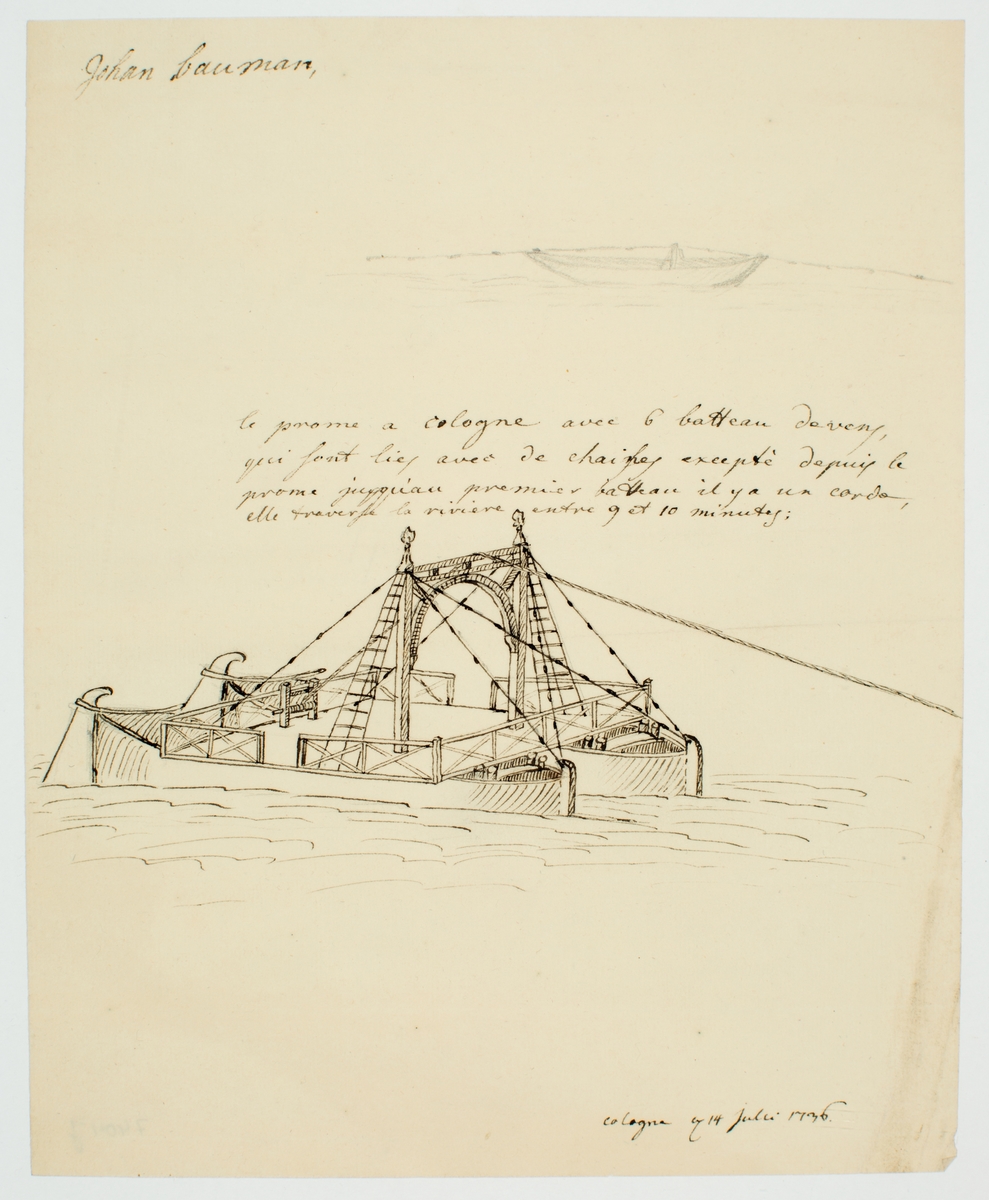 Johan bauman,
le prome a cologne avec 6 batteau devens,
qui sont lies avec de chaines excepté depuis le
prome jusqu'au premier batteau il y a un corde,
elle traverse la riviere entre 9 et 10 minutes;
cologne 14 Juli 1736.